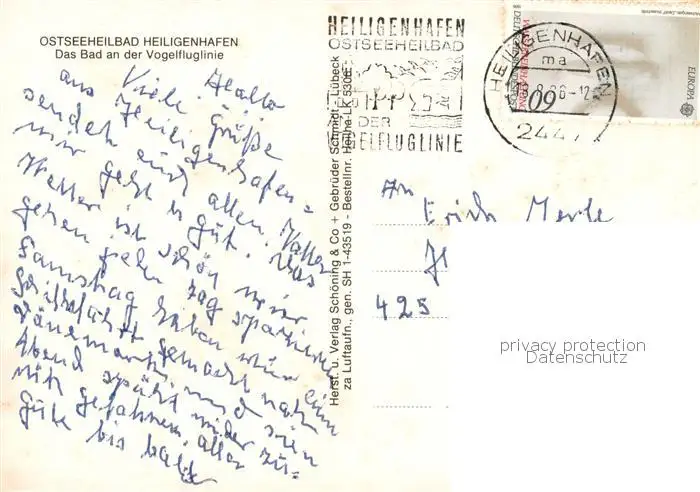 OSTSEEHEILBAD HEILIGENHAFEN
Das Bad an der Vogelfluglinie
Hallo
Viele Grüße
aus Heiligenhafen
sendet euch allen Vatter
mir geht es gut. Das
Wetter ist schön wir
gehen jeden Tag spazieren
Samstag haben wir eine
Schiffahrt gemacht nach
Dänemark, und sein
Abend spät wieder zu-
rück gefahren, alles
Gute bis bald
Herst. u. Verlag Schöning & Co + Gebrüder Schmidt - Lübeck
za Luftaufn., gen. SH 1-43519 - Bestellnr. Heilha-LK 5306
HEILIGENHAFEN
OSTSEEHEILBAD
DER
VOGELFLUGLINIE
HEILIGENHAFEN
ma
8.86-12
2447
60
EUROPA
An
Erich Merle
425
privacy protection
Datenschutz